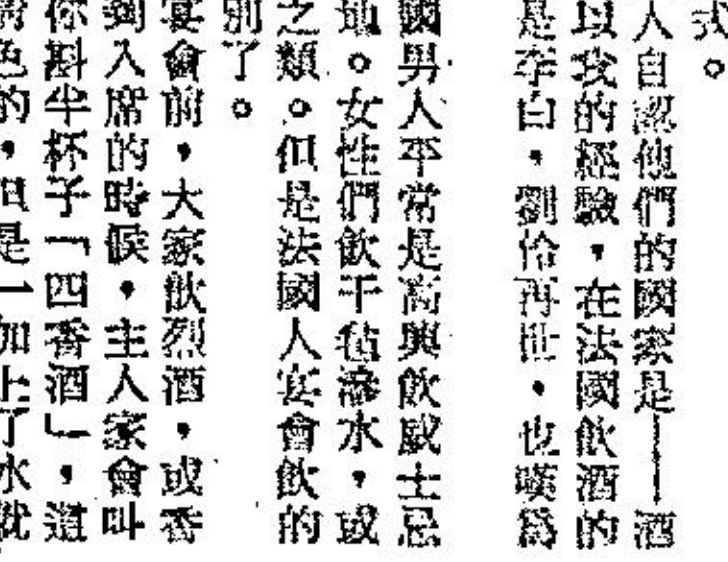 式。
人自認他們的國家是——酒
以我的經驗，在法國飲酒的
是李白，劉伶再世，也嘆爲
國男人平常是高興飲威士忌
地。女性們飲干毡滲水，或
之類。但是法國人宴會飲的
別了。
宴會前，大家飲烈酒，或香
到入席的時候，主人家會叫
你斟半杯子「四香酒」，這
色的，但是一加上了水就